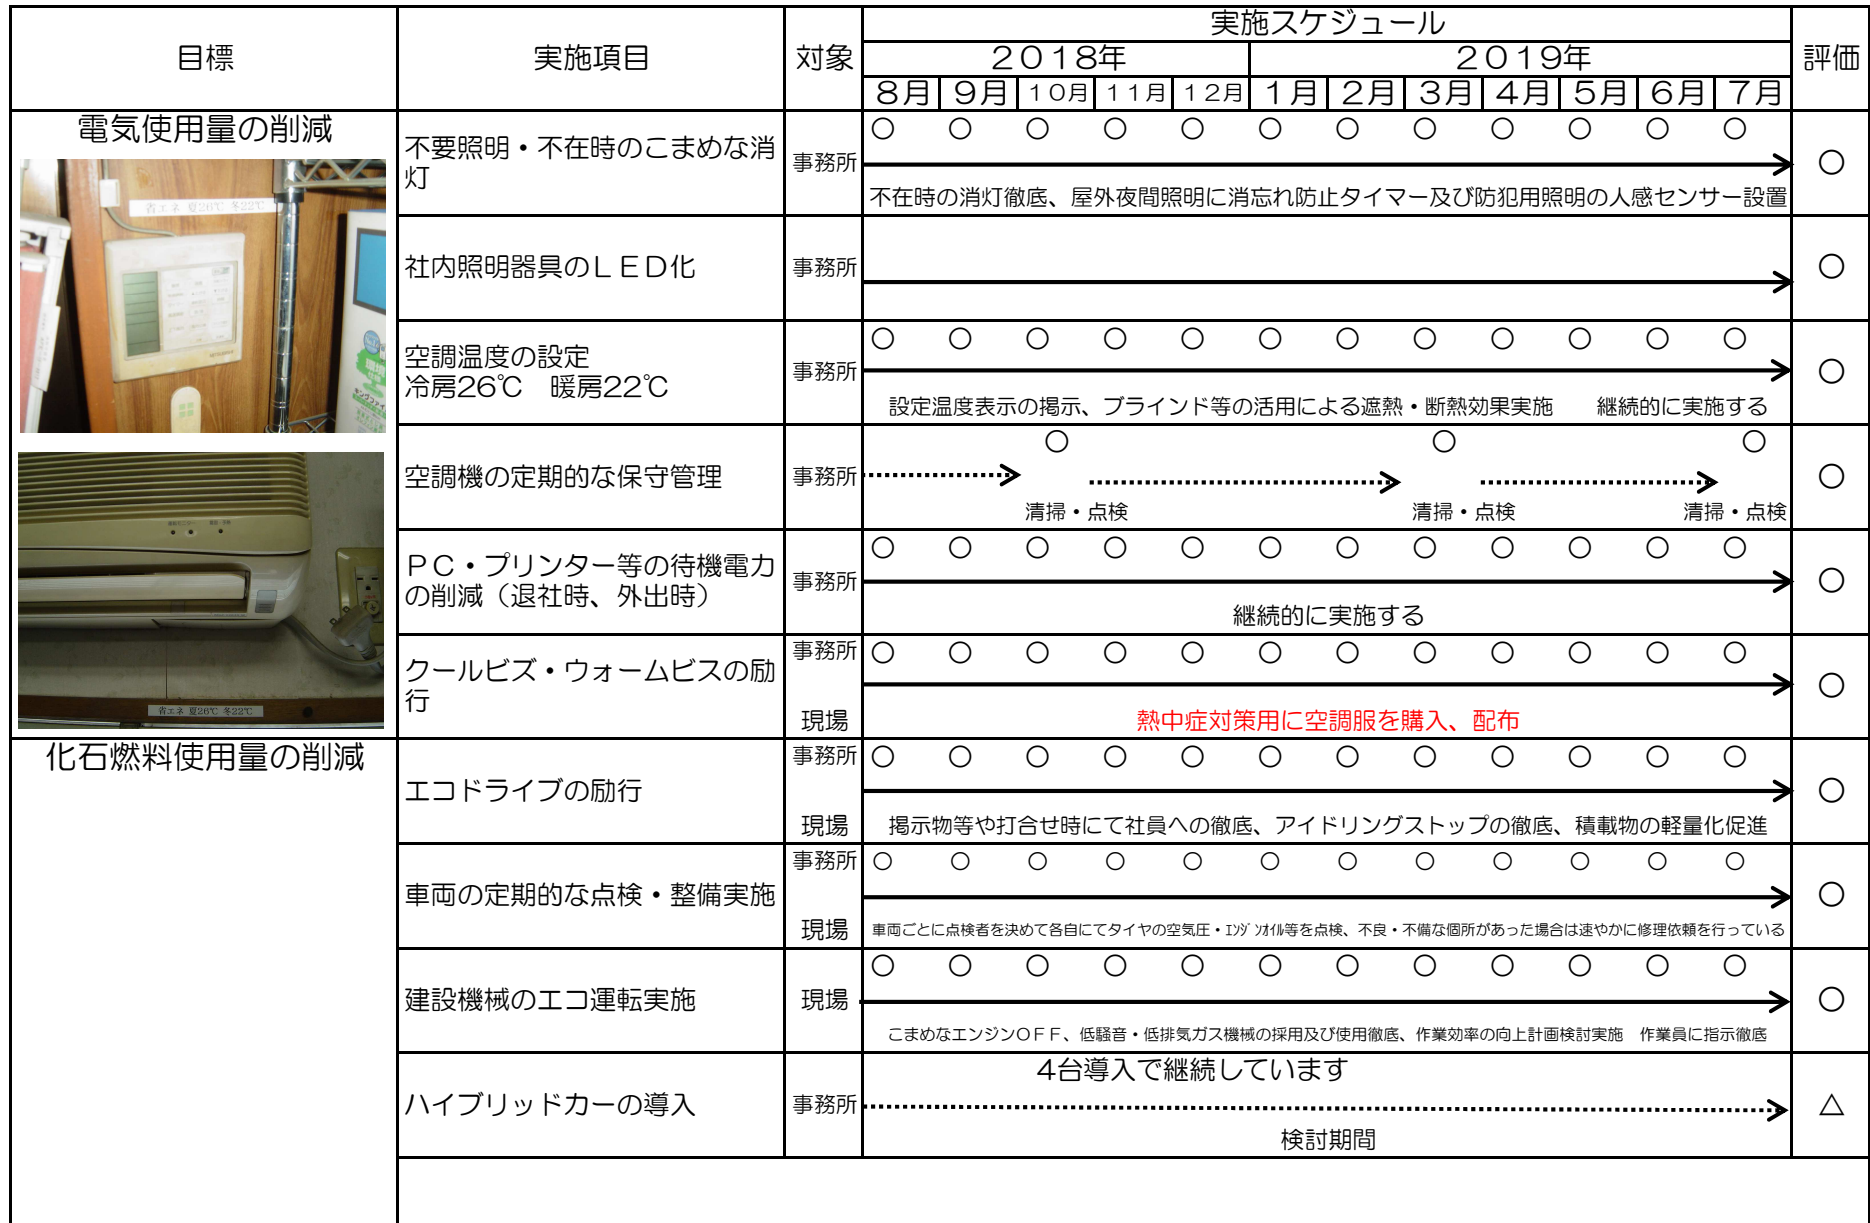 目標
実施項目
対象
実施スケジュール
評価
２０１８年
２０１９年
８月
９月
１０月
１１月
１２月
１月
２月
３月
４月
５月
６月
７月
電気使用量の削減
省エネ 夏26℃ 冬22℃
省エネ 夏26℃ 冬22℃
不要照明・不在時のこまめな消
灯
事務所
○ ○ ○ ○ ○ ○ ○ ○ ○ ○ ○ ○
不在時の消灯徹底、屋外夜間照明に消忘れ防止タイマー及び防犯用照明の人感センサー設置
○
社内照明器具のＬＥＤ化
事務所
○
空調温度の設定
冷房26℃　暖房22℃
事務所
○ ○ ○ ○ ○ ○ ○ ○ ○ ○ ○ ○
設定温度表示の掲示、ブラインド等の活用による遮熱・断熱効果実施　　継続的に実施する
○
空調機の定期的な保守管理
事務所
○ ○ ○
清掃・点検
清掃・点検
清掃・点検
○
ＰＣ・プリンター等の待機電力
の削減（退社時、外出時）
事務所
○ ○ ○ ○ ○ ○ ○ ○ ○ ○ ○ ○
継続的に実施する
○
クールビズ・ウォームビスの励
行
事務所
現場
○ ○ ○ ○ ○ ○ ○ ○ ○ ○ ○ ○
熱中症対策用に空調服を購入、配布
○
化石燃料使用量の削減
エコドライブの励行
事務所
現場
○ ○ ○ ○ ○ ○ ○ ○ ○ ○ ○ ○
掲示物等や打合せ時にて社員への徹底、アイドリングストップの徹底、積載物の軽量化促進
○
車両の定期的な点検・整備実施
事務所
現場
○ ○ ○ ○ ○ ○ ○ ○ ○ ○ ○ ○
車両ごとに点検者を決めて各自にてタイヤの空気圧・ｴﾝｼﾞﾝｵｲﾙ等を点検、不良・不備な個所があった場合は速やかに修理依頼を行っている
○
建設機械のエコ運転実施
現場
○ ○ ○ ○ ○ ○ ○ ○ ○ ○ ○ ○
こまめなエンジンＯＦＦ、低騒音・低排気ガス機械の採用及び使用徹底、作業効率の向上計画検討実施　作業員に指示徹底
○
ハイブリッドカーの導入
事務所
4台導入で継続しています
検討期間
△